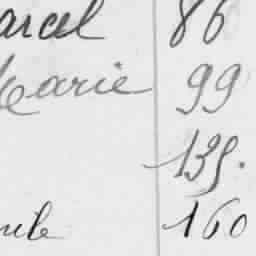 arcel 86
Marie 99
135.
160